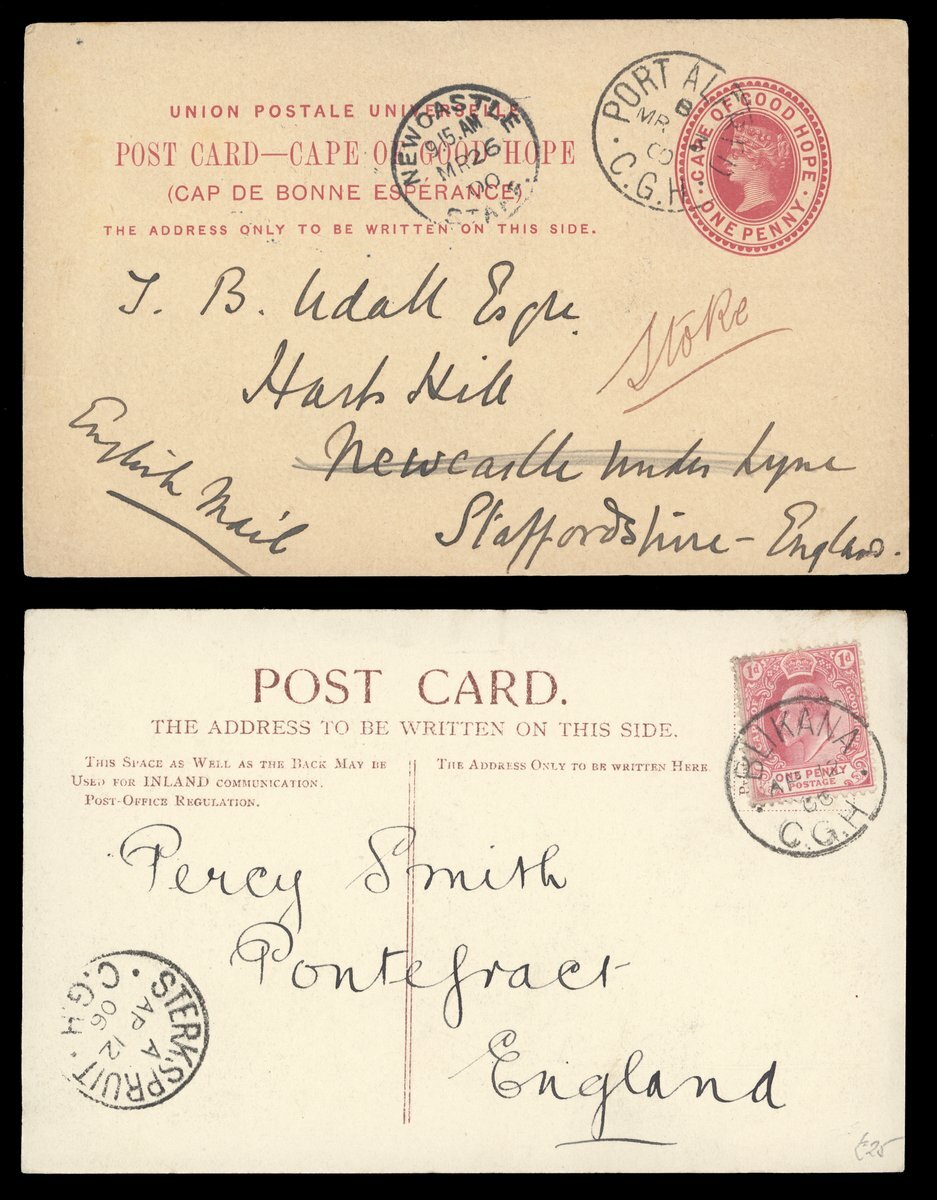 UNION POSTALE UNIVERSELLE
POST CARD—CAPE OF GOOD HOPE
(CAP DE BONNE ESPÉRANCE)
THE ADDRESS ONLY TO BE WRITTEN ON THIS SIDE.
NEWCASTLE
9 15 AM
MR 26
00
STAFF
PORT AL
MR
00
C.G.H.
CAPE OF GOOD HOPE
ONE PENNY
T. B. Udall Esqre
Harts Hill
Stoke
Newcastle under Lyne
Staffordshire – England.
English Mail
POST CARD.
THE ADDRESS TO BE WRITTEN ON THIS SIDE.
THIS SPACE AS WELL AS THE BACK MAY BE
USED FOR INLAND COMMUNICATION.
POST-OFFICE REGULATION.
THE ADDRESS ONLY TO BE WRITTEN HERE
1d 1d
ONE PENNY
POSTAGE
BLIKANA
AP 12
06
C.G.H.
Percy Smith
Pontefract
England
STERKSPRUIT
A
AP 12
06
C.G.H.
£25